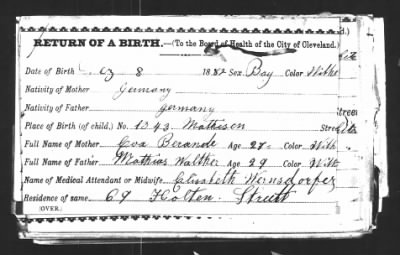 RETURN OF A BIRTH.—(To the Board of Health of the City of Cleveland.)
Date of Birth 8 1882 Sex Boy Color Withe
Nativity of Mother Germany
Nativity of Father Germany
Place of Birth (of child.) No. 1343 Mathisen Street
Full Name of Mother Eva Berande Age 27 Color With
Full Name of Father Mathias Walther Age 29 Color With
Name of Medical Attendant or Midwife, Elisabeth Wernsdorfer
Residence of same 69 Holten Street
(OVER.)